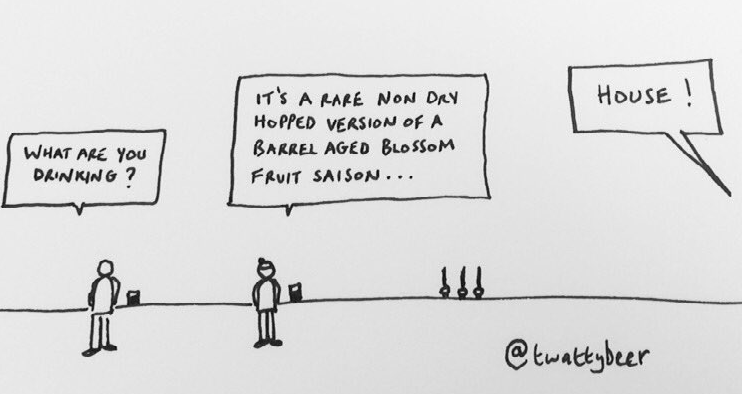 WHAT ARE YOU
DRINKING?
IT'S A RARE NON DRY
HOPPED VERSION OF A
BARREL AGED BLOSSOM
FRUIT SAISON...
HOUSE!
@twattybeer